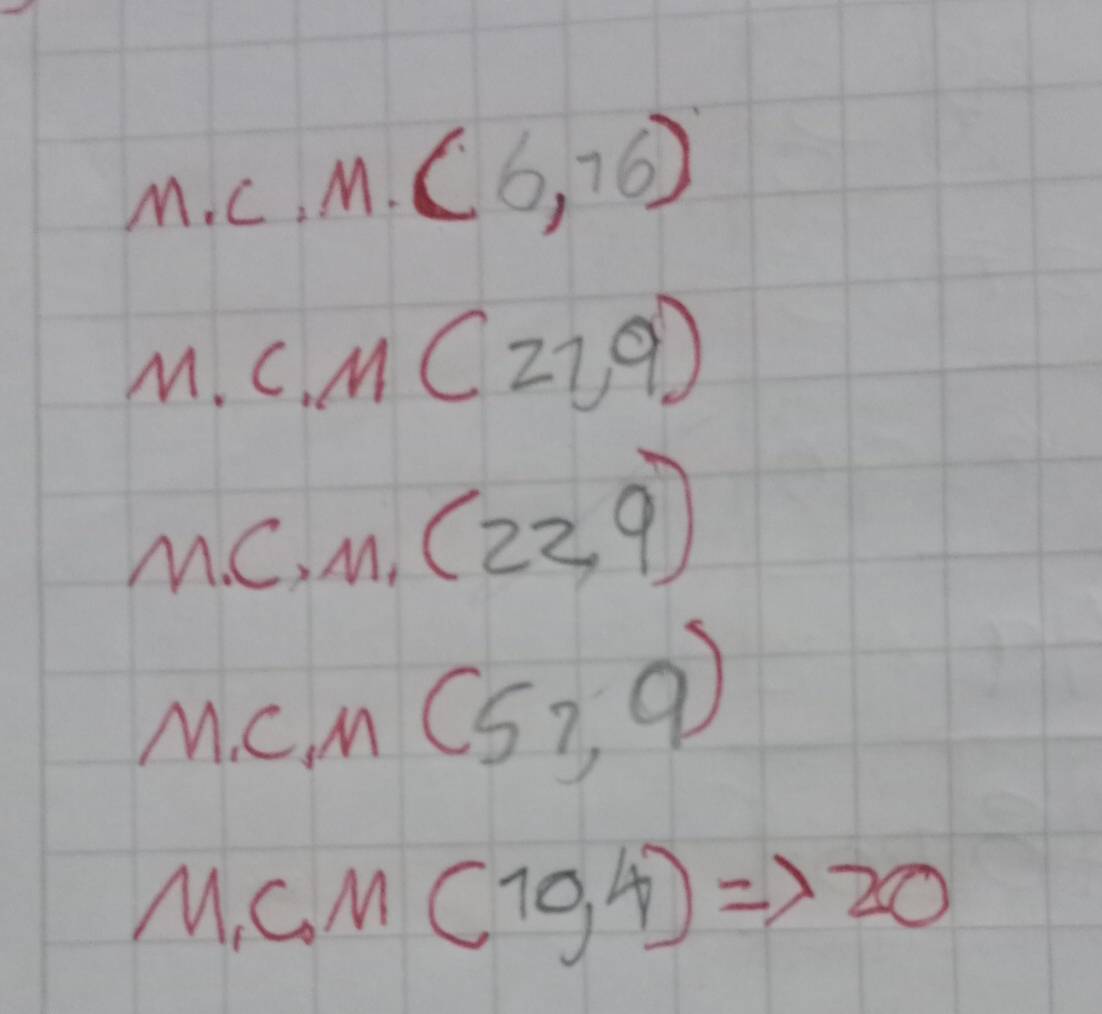 M.C.M.(6,16)
M.C.M(21,9)
M.C.M.(22,9)
M.C.M(51,9)
M.C.M(10,4)=>20